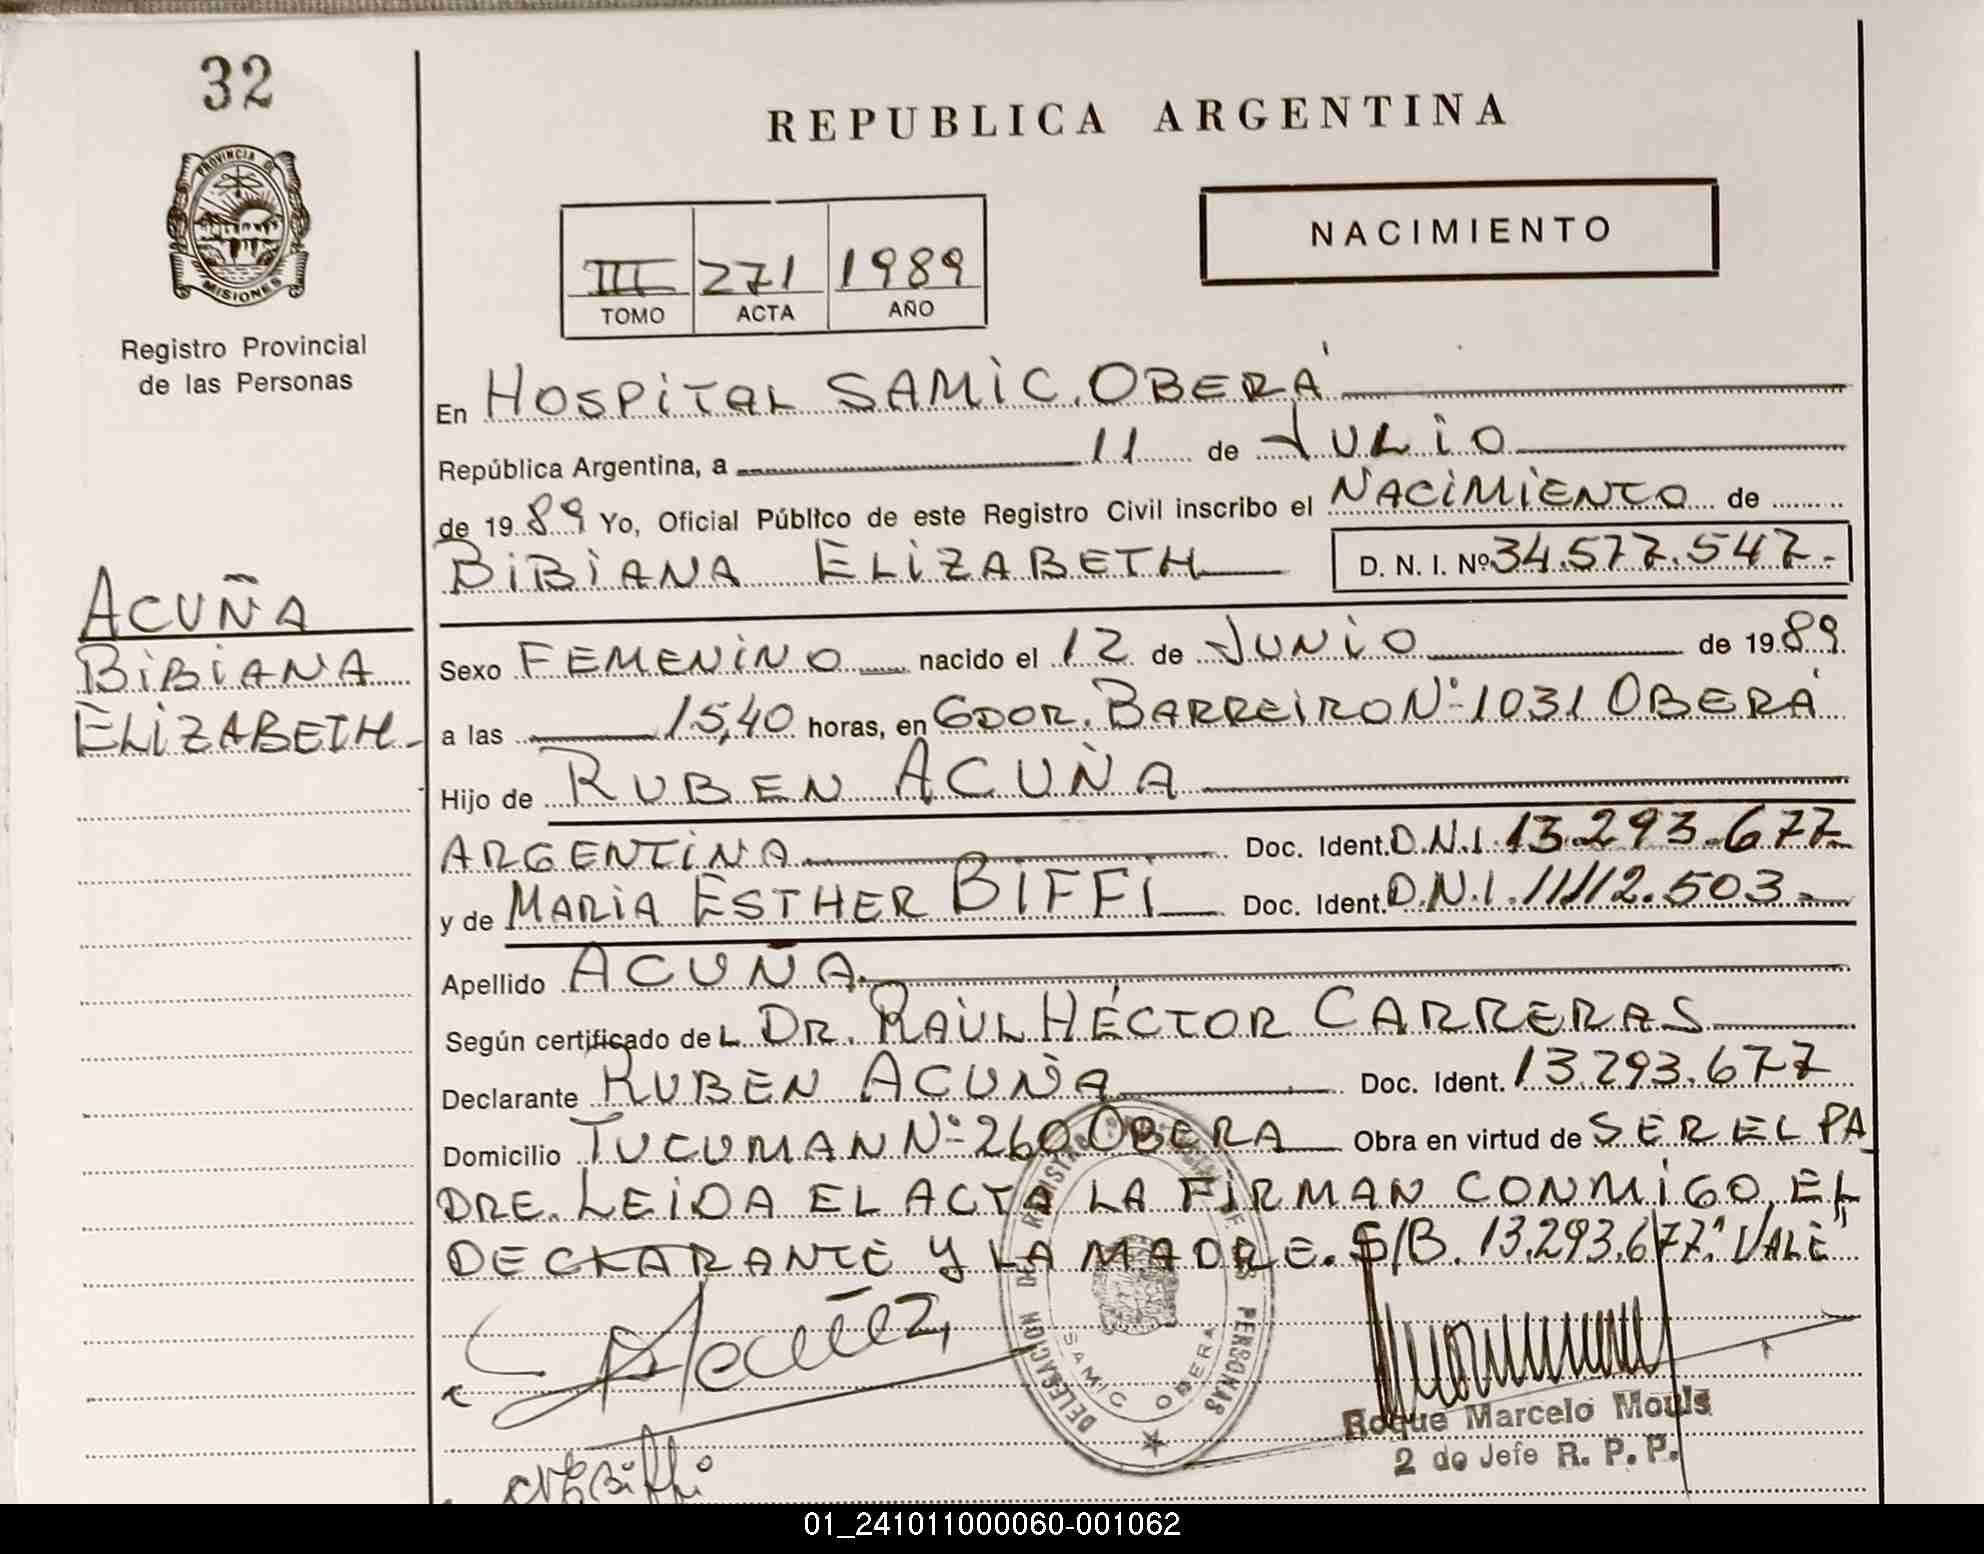 32
REPUBLICA ARGENTINA
PROVINCIA DE
MISIONES
Registro Provincial
de las Personas
NACIMIENTO
III 271 1989
TOMO ACTA AÑO
En HOSPITAL SAMIC. OBERÁ
República Argentina, a 11 de JULIO
de 19 89 Yo, Oficial Público de este Registro Civil inscribo el NACIMIENTO de
BIBIANA ELIZABETH D. N. I. Nº 34.577.547.-
ACUÑA
BIBIANA
ELIZABETH-
Sexo FEMENINO nacido el 12 de JUNIO de 19 89
a las 15,40 horas, en GDOR. BARREIRO Nº 1031 OBERÁ
Hijo de RUBEN ACUÑA
ARGENTINA Doc. Ident. D.N.I. 13.293.677-
y de MARIA ESTHER BIFFI Doc. Ident. D.N.I. 11.112.503.-
Apellido ACUÑA
Según certificado de L DR. RAÚL HÉCTOR CARRERAS
Declarante RUBEN ACUÑA Doc. Ident. 13.293.677
Domicilio TUCUMAN Nº 260 OBERA Obra en virtud de SER EL PA
DRE. LEIDA EL ACTA LA FIRMAN CONMIGO EL
DECLARANTE Y LA MADRE. S/B. 13.293.677. "VALE"
DELEGACION DE REGISTRO DE LAS PERSONAS
SAMIC OBERA
Roque Marcelo Mouls
2 do Jefe R. P. P.
Biffi
01_241011000060-001062